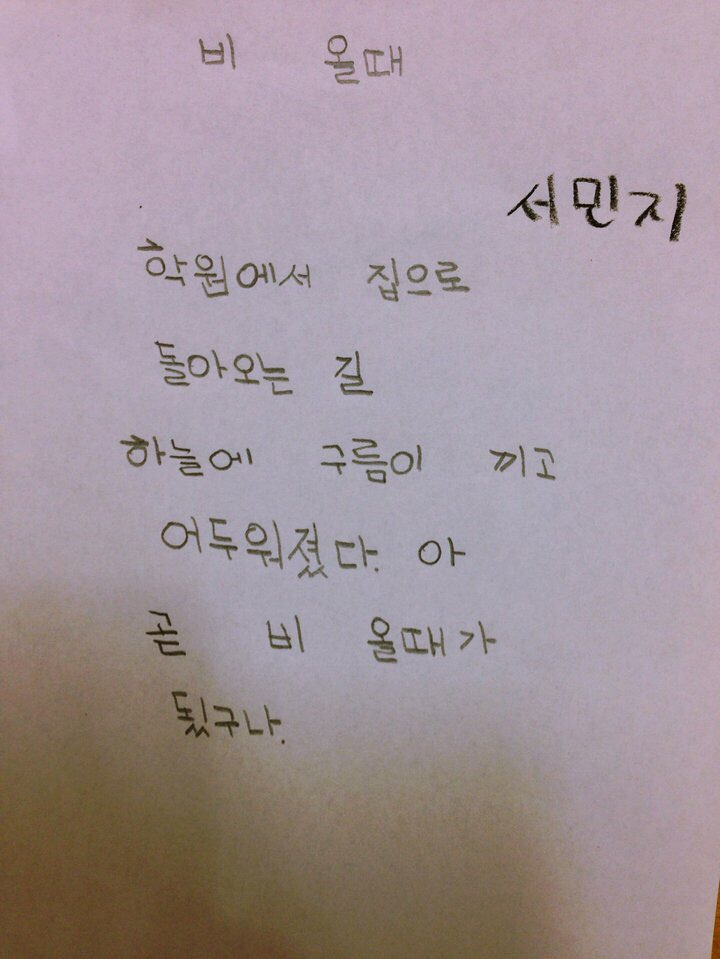 비 올때
서민지
학원에서 집으로
돌아오는 길
하늘에 구름이 끼고
어두워졌다. 아
곧 비 올때가
됬구나.